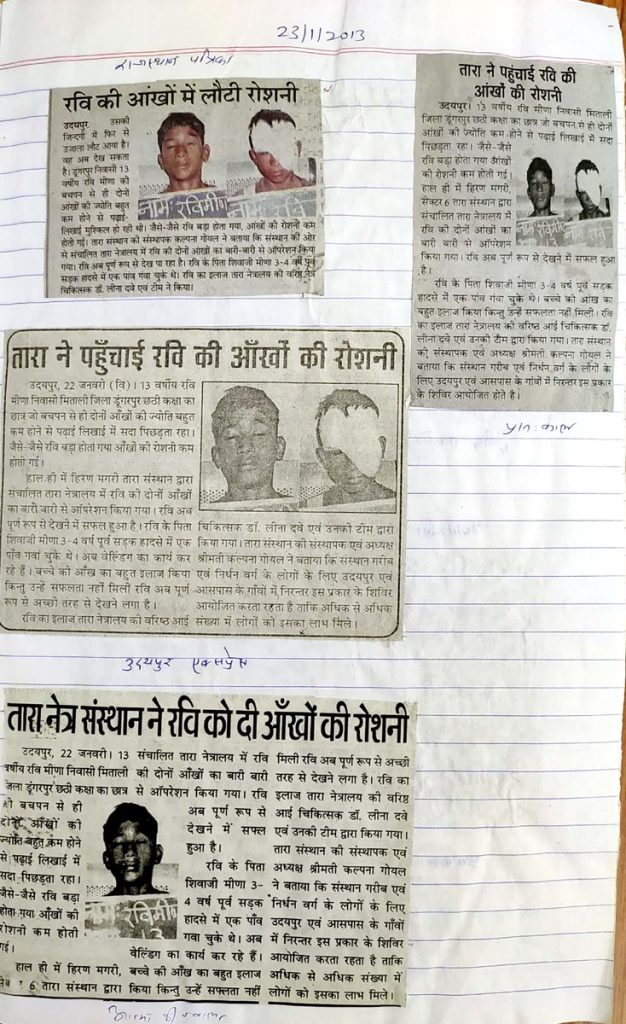 23/1/2013
राजस्थान पत्रिका
रवि की आंखों में लौटी रोशनी
उदयपुर. उसकी
जिन्दगी में फिर से
उजाला लौट आया है।
वह अब देख सकता
है। डूंगरपुर निवासी 13
वर्षीय रवि मीणा की
बचपन से ही दोनों
आंखों की ज्योति बहुत
कम होने से पढ़ाई-
लिखाई मुश्किल हो रही थी। जैसे-जैसे रवि बड़ा होता गया, आंखों की रोशनी कम
होती गई। तारा संस्थान की संस्थापक कल्पना गोयल ने बताया कि संस्थान की ओर
से संचालित तारा नेत्रालय में रवि की दोनों आंखों का बारी-बारी से ऑपरेशन किया
गया। रवि अब पूर्ण रूप से देख पा रहा है। रवि के पिता शिवाजी मीणा 3-4 वर्ष पूर्व
सड़क हादसे में एक पांव गंवा चुके थे। रवि का इलाज तारा नेत्रालय की वरिष्ठ नेत्र
चिकित्सक डॉ. लीना दवे एवं टीम ने किया।
नाम: रवि मीण
नाम: रवि
तारा ने पहुंचाई रवि की
आंखों की रोशनी
उदयपुर। 13 वर्षीय रवि मीणा निवासी मिताली
जिला डूंगरपुर छठी कक्षा का छात्र जो बचपन से ही दोनों
आंखों की ज्योति कम होने से पढ़ाई लिखाई में सदा
पिछड़ता रहा। जैसे-जैसे
रवि बड़ा होता गया आंखों
की रोशनी कम होती गई।
हाल ही में हिरण मगरी,
सेक्टर 6 तारा संस्थान द्वारा
संचालित तारा नेत्रालय में
रवि की दोनों आंखों का
बारी बारी से ऑपरेशन
किया गया। रवि अब पूर्ण रूप से देखने में सफल हुआ
है।
रवि के पिता शिवाजी मीणा 3-4 वर्ष पूर्व सड़क
हादसे में एक पांव गंवा चुके थे। बच्चे की आंख का
बहुत इलाज किया किन्तु उन्हें सफलता नहीं मिली। रवि
का इलाज तारा नेत्रालय की वरिष्ठ आई चिकित्सक डॉ.
लीना दवे एवं उनकी टीम द्वारा किया गया। तारा संस्थान
की संस्थापक एवं अध्यक्ष श्रीमती कल्पना गोयल ने
बताया कि संस्थान गरीब एवं निर्धन वर्ग के लोगों के
लिए उदयपुर एवं आसपास के गांवों में निरन्तर इस प्रकार
के शिविर आयोजित होते है।
प्रात: काल
तारा ने पहुँचाई रवि की आँखों की रोशनी
उदयपुर, 22 जनवरी (वि)। 13 वर्षीय रवि
मीणा निवासी मिताली जिला डूंगरपुर छठी कक्षा का
छात्र जो बचपन से ही दोनों आँखों की ज्योति बहुत
कम होने से पढ़ाई लिखाई में सदा पिछड़ता रहा।
जैसे-जैसे रवि बड़ा होता गया आँखों की रोशनी कम
होती गई।
हाल ही में हिरण मगरी तारा संस्थान द्वारा
संचालित तारा नेत्रालय में रवि की दोनों आँखों
का बारी बारी से ऑपरेशन किया गया। रवि अब
पूर्ण रूप से देखने में सफल हुआ है। रवि के पिता
शिवाजी मीणा 3-4 वर्ष पूर्व सड़क हादसे में एक
पाँव गवां चुके थे। अब वेल्डिंग का कार्य कर
रहे हैं। बच्चे की आँख का बहुत इलाज किया
किन्तु उन्हें सफलता नहीं मिली रवि अब पूर्ण
रूप से अच्छी तरह से देखने लगा है।
रवि का इलाज तारा नेत्रालय की वरिष्ठ आई
चिकित्सक डॉ. लीना दवे एवं उनकी टीम द्वारा
किया गया। तारा संस्थान की संस्थापक एवं अध्यक्ष
श्रीमती कल्पना गोयल ने बताया कि संस्थान गरीब
एवं निर्धन वर्ग के लोगों के लिए उदयपुर एवं
आसपास के गाँवों में निरन्तर इस प्रकार के शिविर
आयोजित करता रहता है ताकि अधिक से अधिक
संख्या में लोगों को इसका लाभ मिले।
उदयपुर एक्सप्रेस
तारा नेत्र संस्थान ने रवि को दी आँखों की रोशनी
उदयपुर, 22 जनवरी। 13
वर्षीय रवि मीणा निवासी मिताली
जिला डूंगरपुर छठी कक्षा का छात्र
जो बचपन से ही
दोनों आँखों की
ज्योति बहुत कम होने
से पढ़ाई लिखाई में
सदा पिछड़ता रहा।
जैसे-जैसे रवि बड़ा
होता गया आँखों की
रोशनी कम होती
गई।
हाल ही में हिरण मगरी,
6 तारा संस्थान द्वारा
संचालित तारा नेत्रालय में रवि
की दोनों आँखों का बारी बारी
से ऑपरेशन किया गया। रवि
अब पूर्ण रूप से
देखने में सफल
हुआ है।
रवि के पिता
शिवाजी मीणा 3-
4 वर्ष पूर्व सड़क
हादसे में एक पाँव
गवा चुके थे। अब
वेल्डिंग का कार्य कर रहे हैं।
बच्चे की आँख का बहुत इलाज
किया किन्तु उन्हें सफलता नहीं
मिली रवि अब पूर्ण रूप से अच्छी
तरह से देखने लगा है। रवि का
इलाज तारा नेत्रालय की वरिष्ठ
आई चिकित्सक डॉ. लीना दवे
एवं उनकी टीम द्वारा किया गया।
तारा संस्थान की संस्थापक एवं
अध्यक्ष श्रीमती कल्पना गोयल
ने बताया कि संस्थान गरीब एवं
निर्धन वर्ग के लोगों के लिए
उदयपुर एवं आसपास के गाँवों
में निरन्तर इस प्रकार के शिविर
आयोजित करता रहता है ताकि
अधिक से अधिक संख्या में
लोगों को इसका लाभ मिले।
नाम: रवि मीण
13